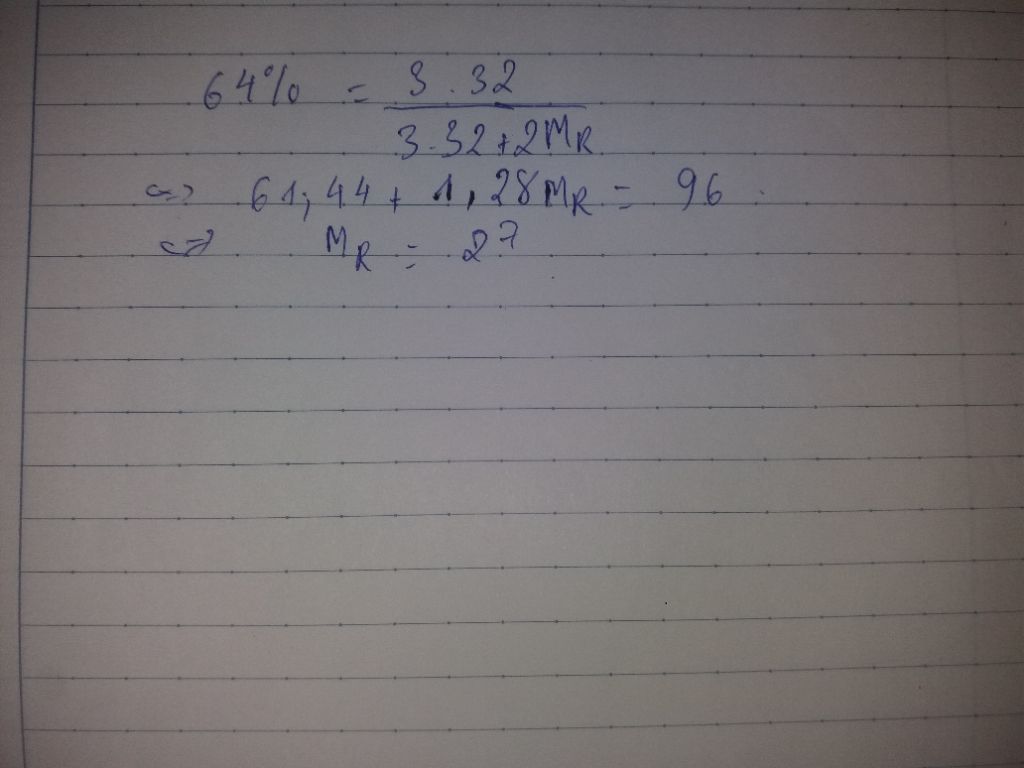 64% = 3.32 / 3.32+2MR
<=> 61,44 + 1,28MR = 96
<=> MR = 27